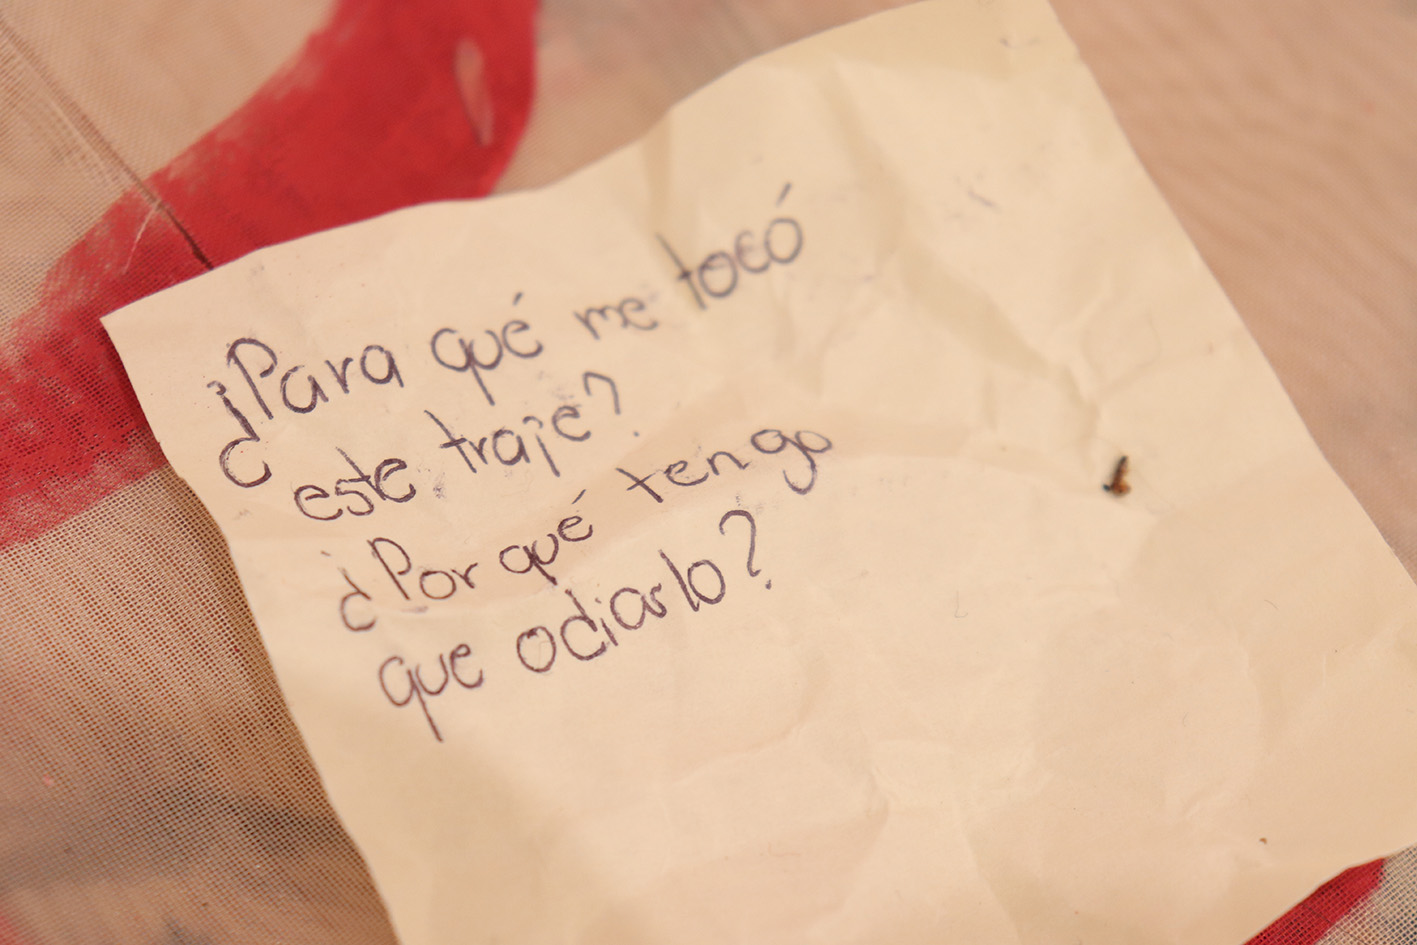 ¿Para qué me tocó
este traje?
¿Por qué tengo
que odiarlo?